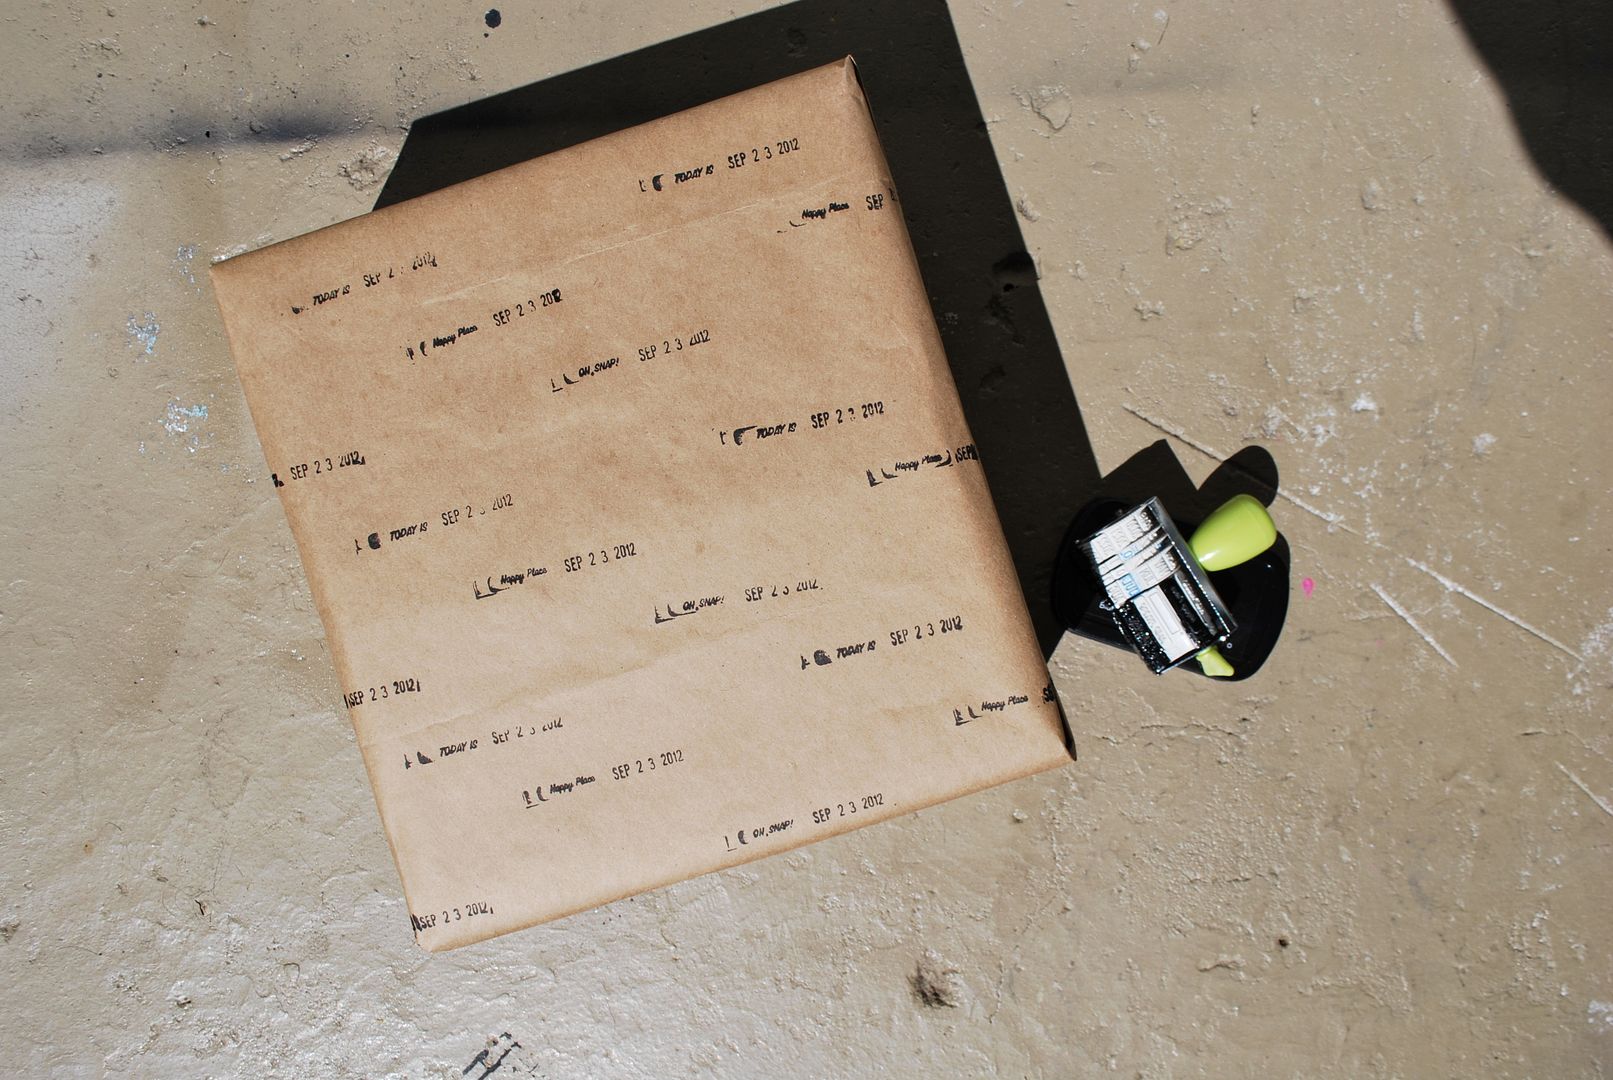 TODAY IS SEP 2 3 2012
Happy Place SEP
TODAY IS SEP 2 2012
Happy Place SEP 2 3 2012
OH, SNAP! SEP 2 3 2012
TODAY IS SEP 2 3 2012
Happy Place SEP
SEP 2 3 2012
TODAY IS SEP 2 3 2012
Happy Place SEP 2 3 2012
OH, SNAP! SEP 2 3 2012
TODAY IS SEP 2 3 2012
SEP 2 3 2012
Happy Place
TODAY IS SEP 2 3 2012
Happy Place SEP 2 3 2012
OH, SNAP! SEP 2 3 2012
SEP 2 3 2012